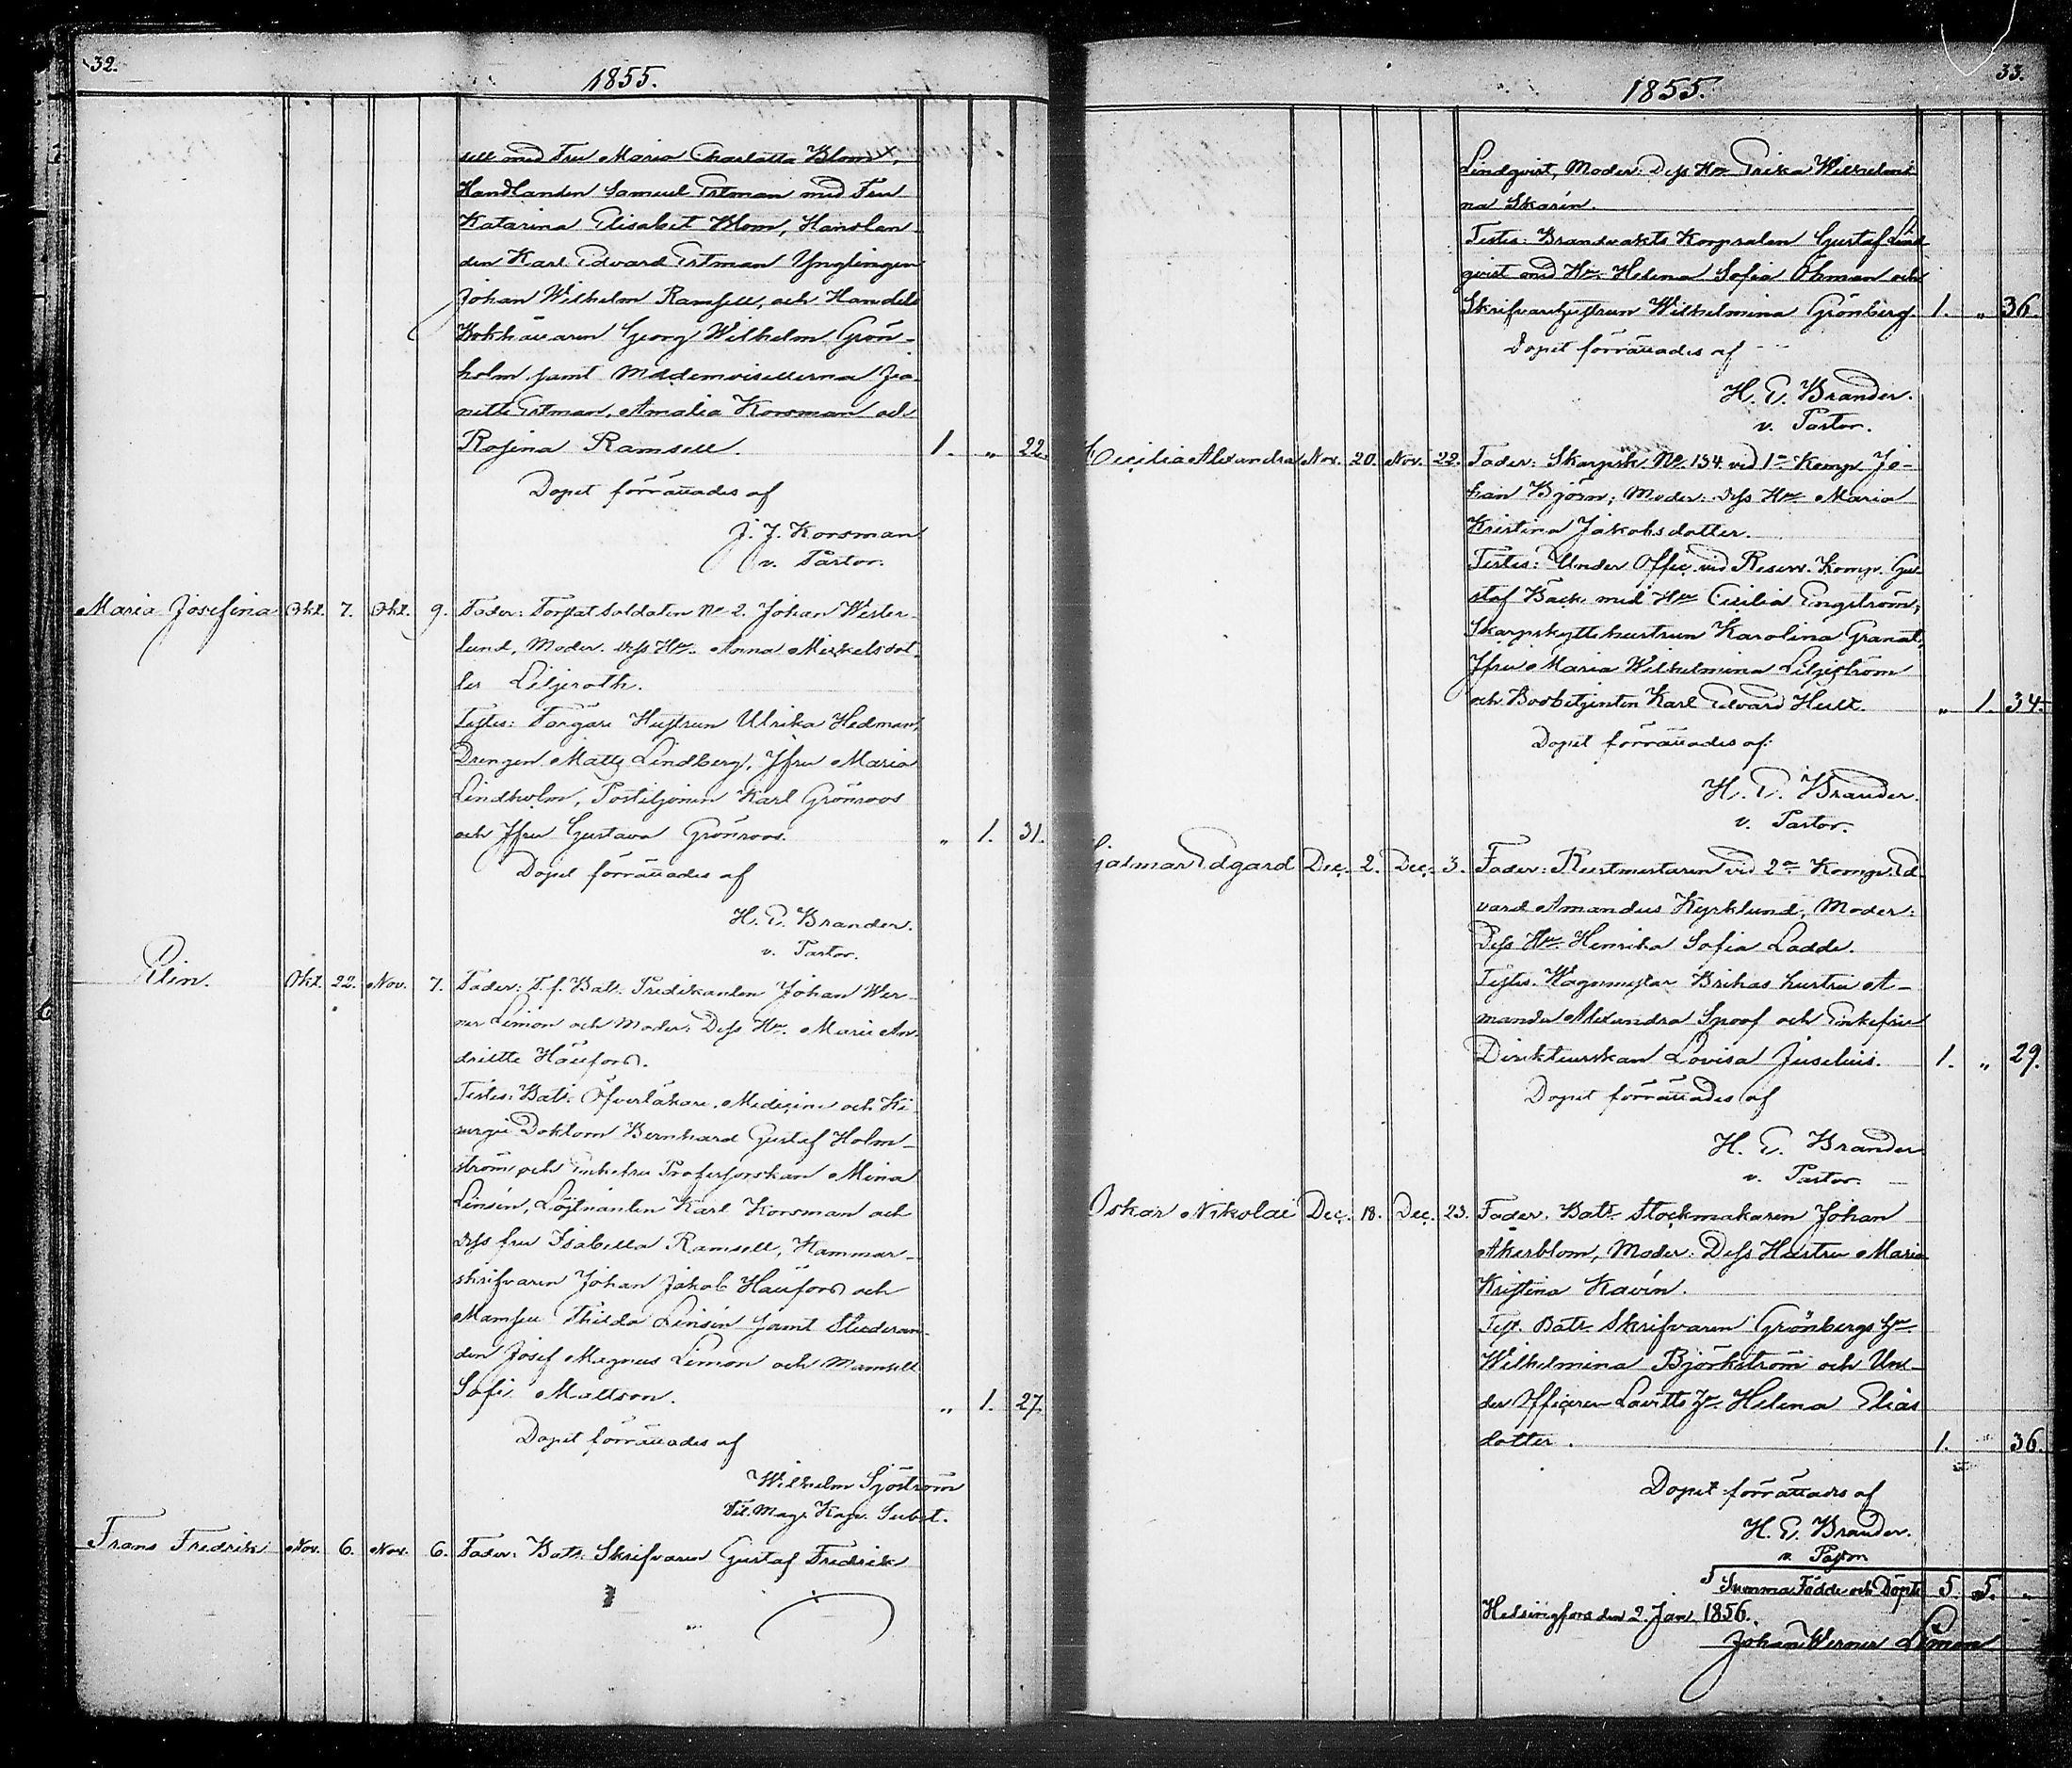 32.
1855.
sell med Fru Maria Charlotta Blom,
Handlanden Samuel Ertman med Fru
Katarina Elisabet Blom, Handlan-
den Karl Edvard Ertman Ynglingen
Johan Wilhelm Ramsell, och Handels
Bokhållaren Georg Wilhelm Grön-
holm samt Mademoisellerna Jea-
nette Ertman, Amalia Korsman och
Rosina Ramsell. 1. " 22.
Dopet förrättades af
J. J. Korsman
v. Pastor.
Maria Josefina Okt. 7. Okt. 9. Fader: Soldaten No 2. Johan Wester-
lund, Moder. Dess Hu. Anna Mickelsdot-
ter Liljeroth.
Testes: Färgare Hustrun Ulrika Hedman,
Drengen Matts Lindberg, Jfru Maria
Lindholm, Postiljonen Karl Grönroos
och Jfru Gustava Grönroos. " 1. 31.
Dopet förrättades af
H. E. Brander.
v. Pastor.
Elin. Okt. 22. Nov. 7. Fader: T. f. Bats. Predikanten Johan Wer-
ner Limon och Moder: Dess Hu. Marie An-
driette Häuford.
Testes: Bats. Öfverläkare, Medicine och Ki-
rurgie Doktorn Bernhard Gustaf Holm-
ström och Enkefru Professorskan Mina
Linsén, Löjtnanten Karl Korsman och
dess fru Isabella Ramsell, Kammar-
skrifvaren Johan Jakob Häuford och
Mamsell Thilda Linsén samt Studeran-
den Josef Magnus Limon och Mamsell
Sofi Mattson. " 1. 27.
Dopet förrättades af
Wilhelm Sjöström
Fil. Mag. Kap. Subst.
Frans Fredrik Nov. 6. Nov. 6. Fader: Bats. Skrifvaren Gustaf Fredrik
33.
1855.
Lindqvist, Moder: Dess Hu Erika Wilhelmi-
na Skarin.
Testes: Brandvakts Korpralen Gustaf Lind-
qvist med Hu. Helena Sofia Öhman och
Skrifvarehustrun Wilhelmina Grönberg 1. " 36.
Dopet förrättades af
H. E. Brander.
v. Pastor.
Cecilia Alexandra Nov. 20. Nov. 22. Fader: Skarpsk. No. 134 vid 1a Komp. Jo-
han Björn; Moder: Dess Hu Maria
Kristina Jakobsdotter.
Testes: Under Offic. vid Reserv. Komp. Gu-
staf Back med Hu Cecilia Engström;
Skarpskyttehustrun Karolina Granat,
Jfru Maria Wilhelmina Liljeström
och Bosbetjenten Karl Edvard Hult. " 1. 34.
Dopet förrättades af:
H. E. Brander.
v. Pastor.
Hjalmar Edgard Dec. 2. Dec. 3. Fader: Rustmestaren vid 2a Komp. Ed-
vard Amandus Kyrklund, Moder:
Dess Hu. Henrika Sofia Ladde.
Testes. Wagnmestar Brihas hustru A-
manda Alexandra Spoof och Enkefru
Direkteurskan Lovisa Juselius. 1. " 29.
Dopet förrättades af
H. E. Brander
v. Pastor.
Oskar Nikolai Dec. 18. Dec. 23. Fader. Bats. Stockmakaren Johan
Akerblom, Moder: Dess Hustru Maria
Kristina Kavén.
Test. Bats. Skrifvaren Grönbergs Hu.
Wilhelmina Björkström och Un-
der Officeren Hu. Helena Elias
dotter. 1. 36.
Dopet förrättades af
H. E. Brander.
v. Pastor
Summa Födde och Döpte 5. 5. "
Helsingfors den 2. Jan. 1856.
Johan Werner Limon